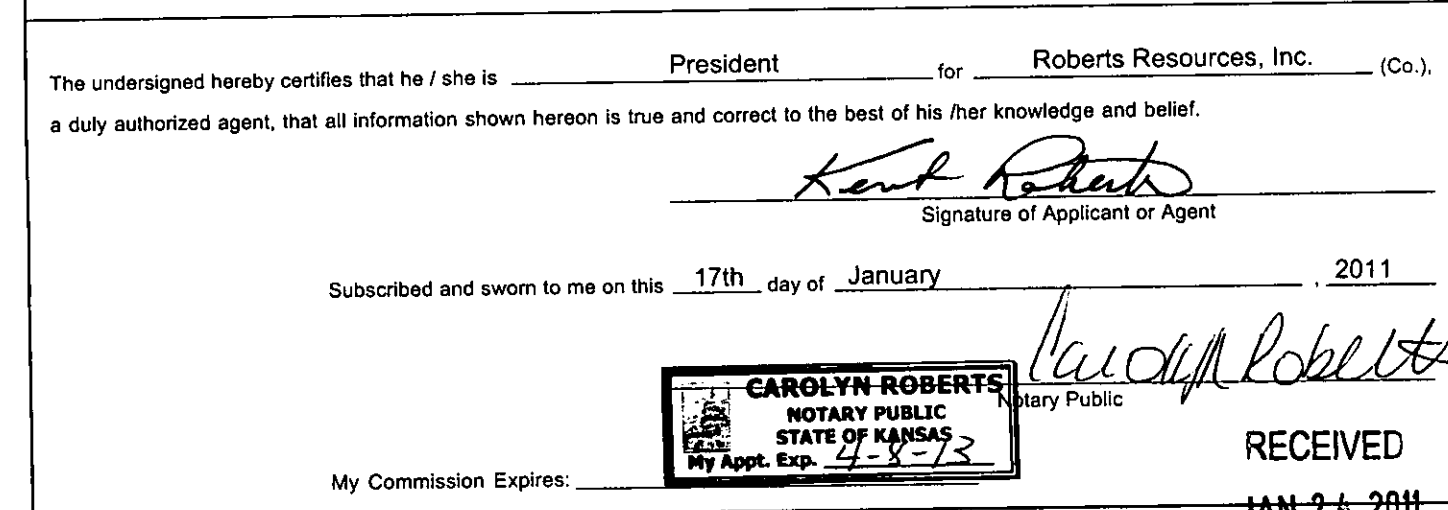 The undersigned hereby certifies that he / she is President for Roberts Resources, Inc. (Co.),
a duly authorized agent, that all information shown hereon is true and correct to the best of his /her knowledge and belief.
Kent Roberts
Signature of Applicant or Agent
Subscribed and sworn to me on this 17th day of January , 2011
Carolyn Roberts
CAROLYN ROBERTS
Notary Public
NOTARY PUBLIC
STATE OF KANSAS
My Appt. Exp. 4-8-13
RECEIVED
My Commission Expires:
JAN 24 2011